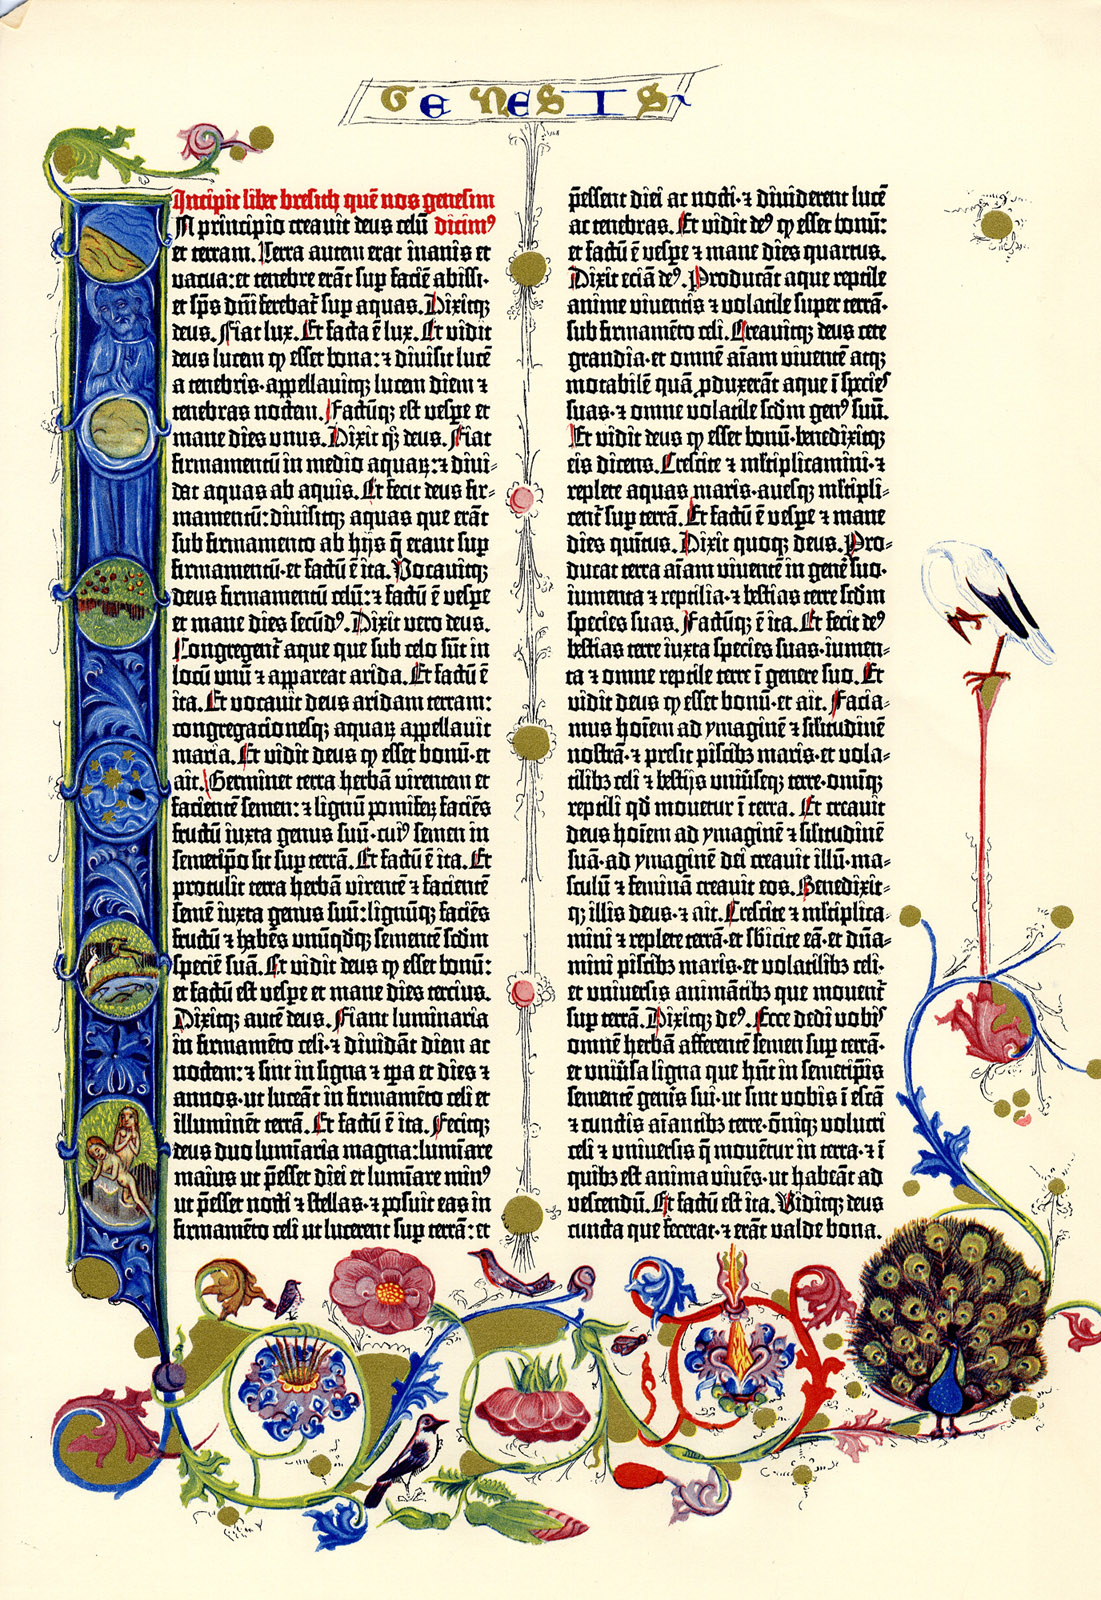 GENESIS
Incipit liber bresith quē nos genesim
In principio creauit deus celū dicimꝰ
et terram. Terra autem erat inanis et
vacua: et tenebre erāt sup faciē abissi·
et sp̄s dn̄i ferebat̄ sup aquas. Dixitqꝫ
deus. Fiat lux. Et facta ē lux. Et vidit
deus lucem ꝙ esset bona: ⁊ diuisit lucē
a tenebris· appellauitqꝫ lucem diem ⁊
tenebras noctem. Factūqꝫ est vesp̄e et
mane dies vnus. Dixit qꝫ deus. Fiat
firmamentū in medio aquaꝝ: ⁊ diui-
dat aquas ab aquis. Et fecit deus fir-
mamentū: diuisitqꝫ aquas que erāt
sub firmamento ab hijs q̄ erant sup
firmamentū· et factū ē ita. Vocauitqꝫ
deus firmamentū celū: ⁊ factū ē vesp̄e
et mane dies secūdꝰ. Dixit vero deus.
Congregent̄ aque que sub celo sūt in
locū vnū ⁊ appareat arida. Et factū ē
ita. Et vocauit deus aridam terram:
congregacionesqꝫ aquaꝝ appellauit
maria. Et vidit deus ꝙ esset bonū· et
ait. Germinet terra herbā virentem et
facientē semen: ⁊ lignū pomifeꝝ faciēs
fructū iuxta genus suū· cuiꝰ semen in
semetip̄o sit sup terrā. Et factū ē ita. Et
protulit terra herbā virentē ⁊ facientē
semē iuxta genus suū: lignūqꝫ faciēs
fructū ⁊ habēs vnūqdqꝫ sementē scdm
speciē suā. Et vidit deus ꝙ esset bonū:
et factū est vesp̄e et mane dies tercius.
Dixitqꝫ autē deus. Fiant luminaria
in firmamēto celi· ⁊ diuidāt diem ac
noctem: ⁊ sint in signa ⁊ tp̄a et dies ⁊
annos· ut luceāt in firmamēto celi et
illuminēt terrā. Et factū ē ita. Fecitqꝫ
deus duo lumīaria magna: lumīare
maius ut p̄esset diei et lumīare minꝰ
ut p̄esset nocti ⁊ stellas· ⁊ posuit eas in
firmamēto celi ut lucerent sup terrā: et
p̄essent diei ac nocti· ⁊ diuiderent lucē
ac tenebras. Et vidit deꝰ ꝙ esset bonū:
et factū ē vesp̄e ⁊ mane dies quartus.
Dixit eciā deꝰ. Producāt aque reptile
anime viuentis ⁊ volatile super terrā·
sub firmamēto celi. Creauitqꝫ deus cete
grandia· et omnē aīam viuentē atqꝫ
motabilē quā ꝓduxerāt aque ī species
suas· ⁊ omne volatile scdm genꝰ suū.
Et vidit deus ꝙ esset bonū· benedixitqꝫ
eis dicens. Crescite ⁊ ml̄tiplicamini· ⁊
replete aquas maris· auesqꝫ ml̄tipli-
cent̄ sup terrā. Et factū ē vesp̄e ⁊ mane
dies quītus. Dixit quoqꝫ deus. Pro-
ducat terra aīam viuentē in genē suo·
iumenta ⁊ reptilia· ⁊ bestias terre scdm
species suas. Factūqꝫ ē ita. Et fecit deꝰ
bestias terre iuxta species suas· iumen-
ta ⁊ omne reptile terre ī genere suo. Et
vidit deus ꝙ esset bonū· et ait. Facia-
mus hoīem ad ymaginē ⁊ sīlitudinē
nostrā· ⁊ presit piscibꝫ maris· et vola-
tilibꝫ celi ⁊ bestijs vniūseqꝫ terre· omīqꝫ
reptili qd mouetur ī terra. Et creauit
deus hoīem ad ymaginē ⁊ sīlitudinē
suā· ad ymaginē dei creauit illū· ma-
sculū ⁊ feminā creauit eos. Benedixit-
qꝫ illis deus· ⁊ ait. Crescite ⁊ ml̄tiplica-
mini ⁊ replete terrā· et sbicite eā· et dn̄a-
mini piscibꝫ maris· et volatilibꝫ celi·
et vniuersis animātibꝫ que mouent̄
sup terrā. Dixitqꝫ deꝰ. Ecce dedi vobis
omnē herbā afferentē semen sup terrā·
et vniūsa ligna que hn̄t in semetip̄is
sementē genīs sui· ut sint vobis ī escā
⁊ cunctis aīantibꝫ terre· ōniqꝫ volucri
celi ⁊ vniuersis q̄ mouētur in terra· ⁊ ī
quibꝫ est anima viuēs· ut habeāt ad
vescendū. Et factū est ita. Viditqꝫ deus
cuncta que fecerat· ⁊ erāt valde bona.